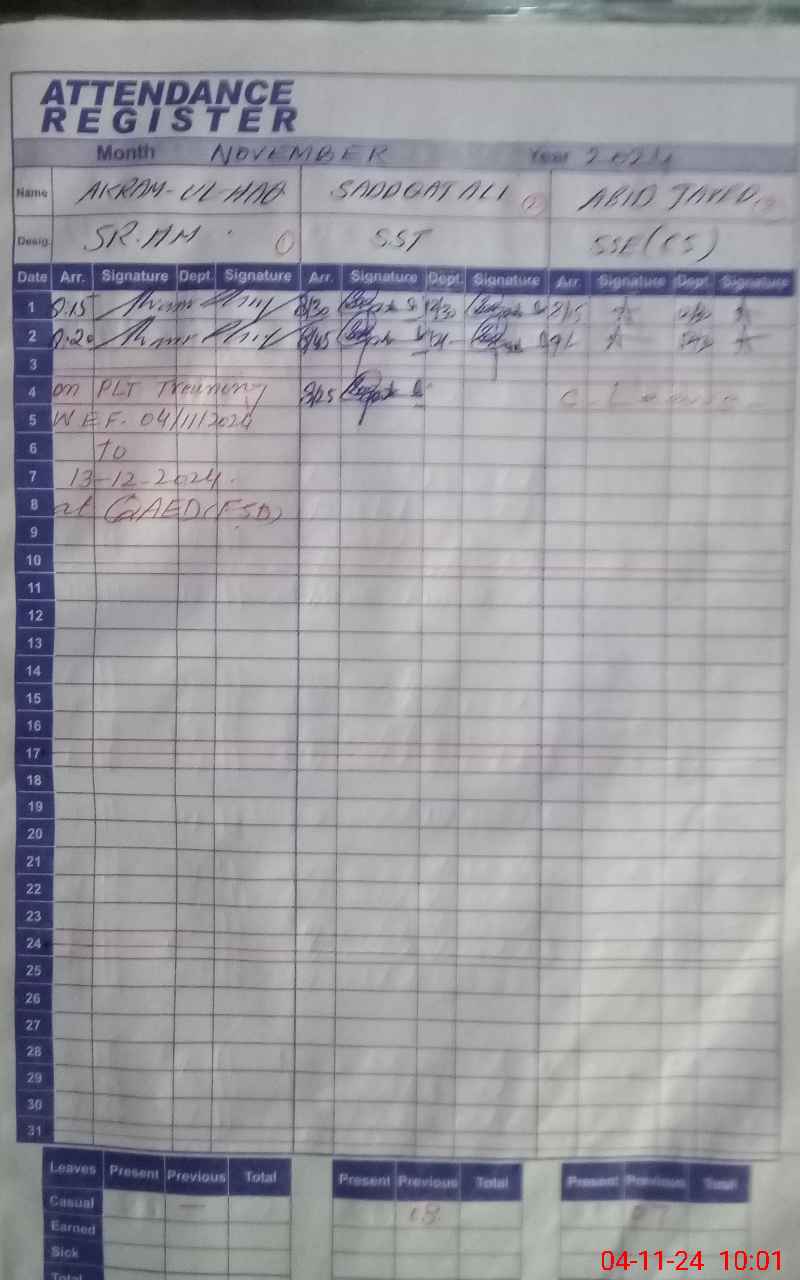 ATTENDANCE
REGISTER
Month NOVEMBER Year 2024
Name AKRAM-UL-HAQ SADDQAT ALI ABID JAVED
Desig. SR.HM 1 SST SSE(CS)
Date Arr. Signature Dept. Signature Arr. Signature Dept. Signature Arr. Signature Dept. Signature
1 8:15 8/30 12/30 8/15
2 8:20 8/45
3
4 on PLT Training C. Leave
5 W.E.F. 04/11/2024
6 To
7 13-12-2024.
8 at QAED(FSD)
9
10
11
12
13
14
15
16
17
18
19
20
21
22
23
24
25
26
27
28
29
30
31
Leaves Present Previous Total Present Previous Total Present Previous Total
Casual — 18 07
Earned
Sick
Total
04-11-24 10:01